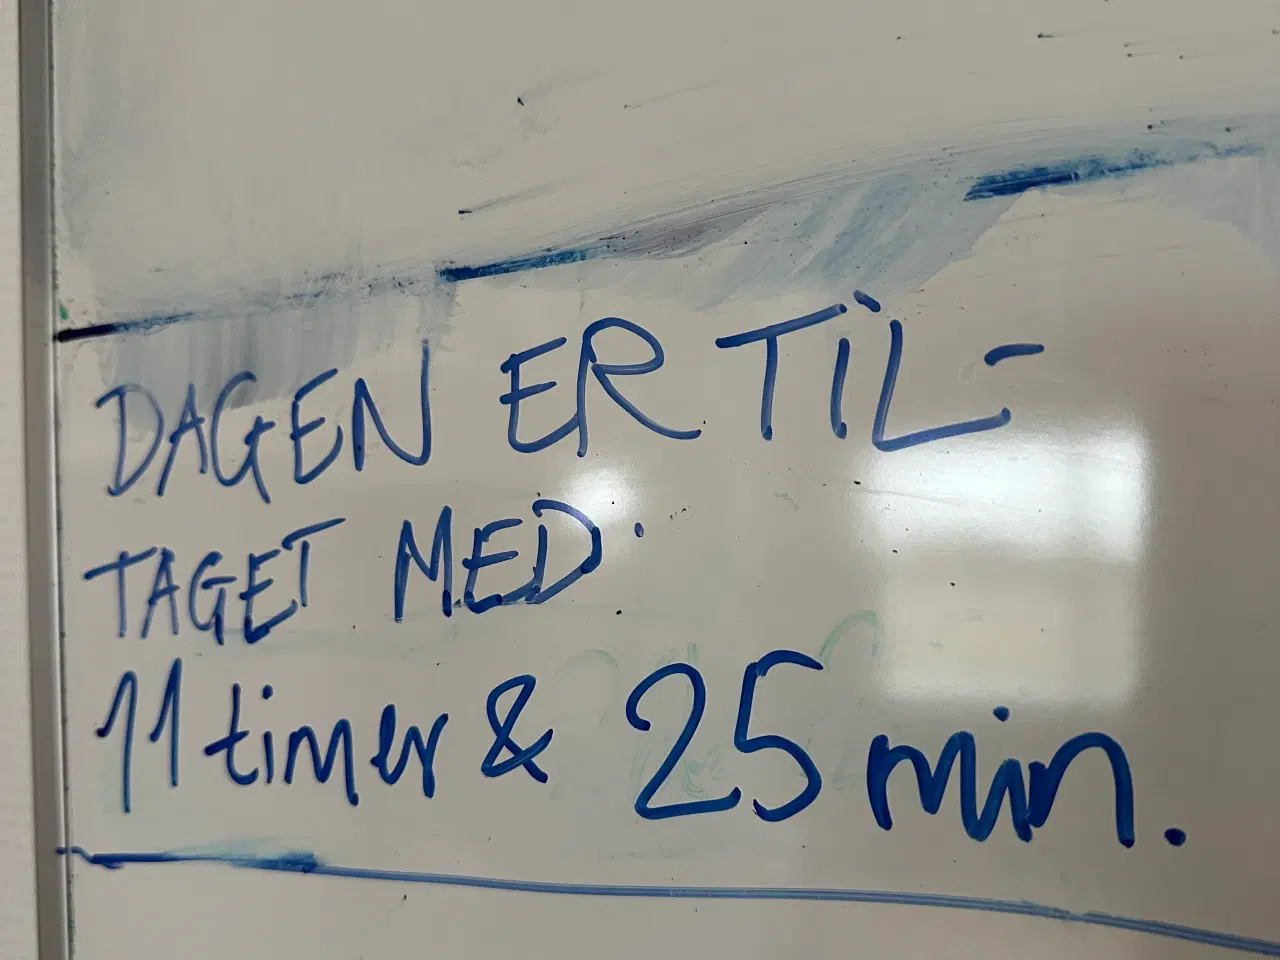 DAGEN ER TIL-
TAGET MED:
11 timer & 25 min.